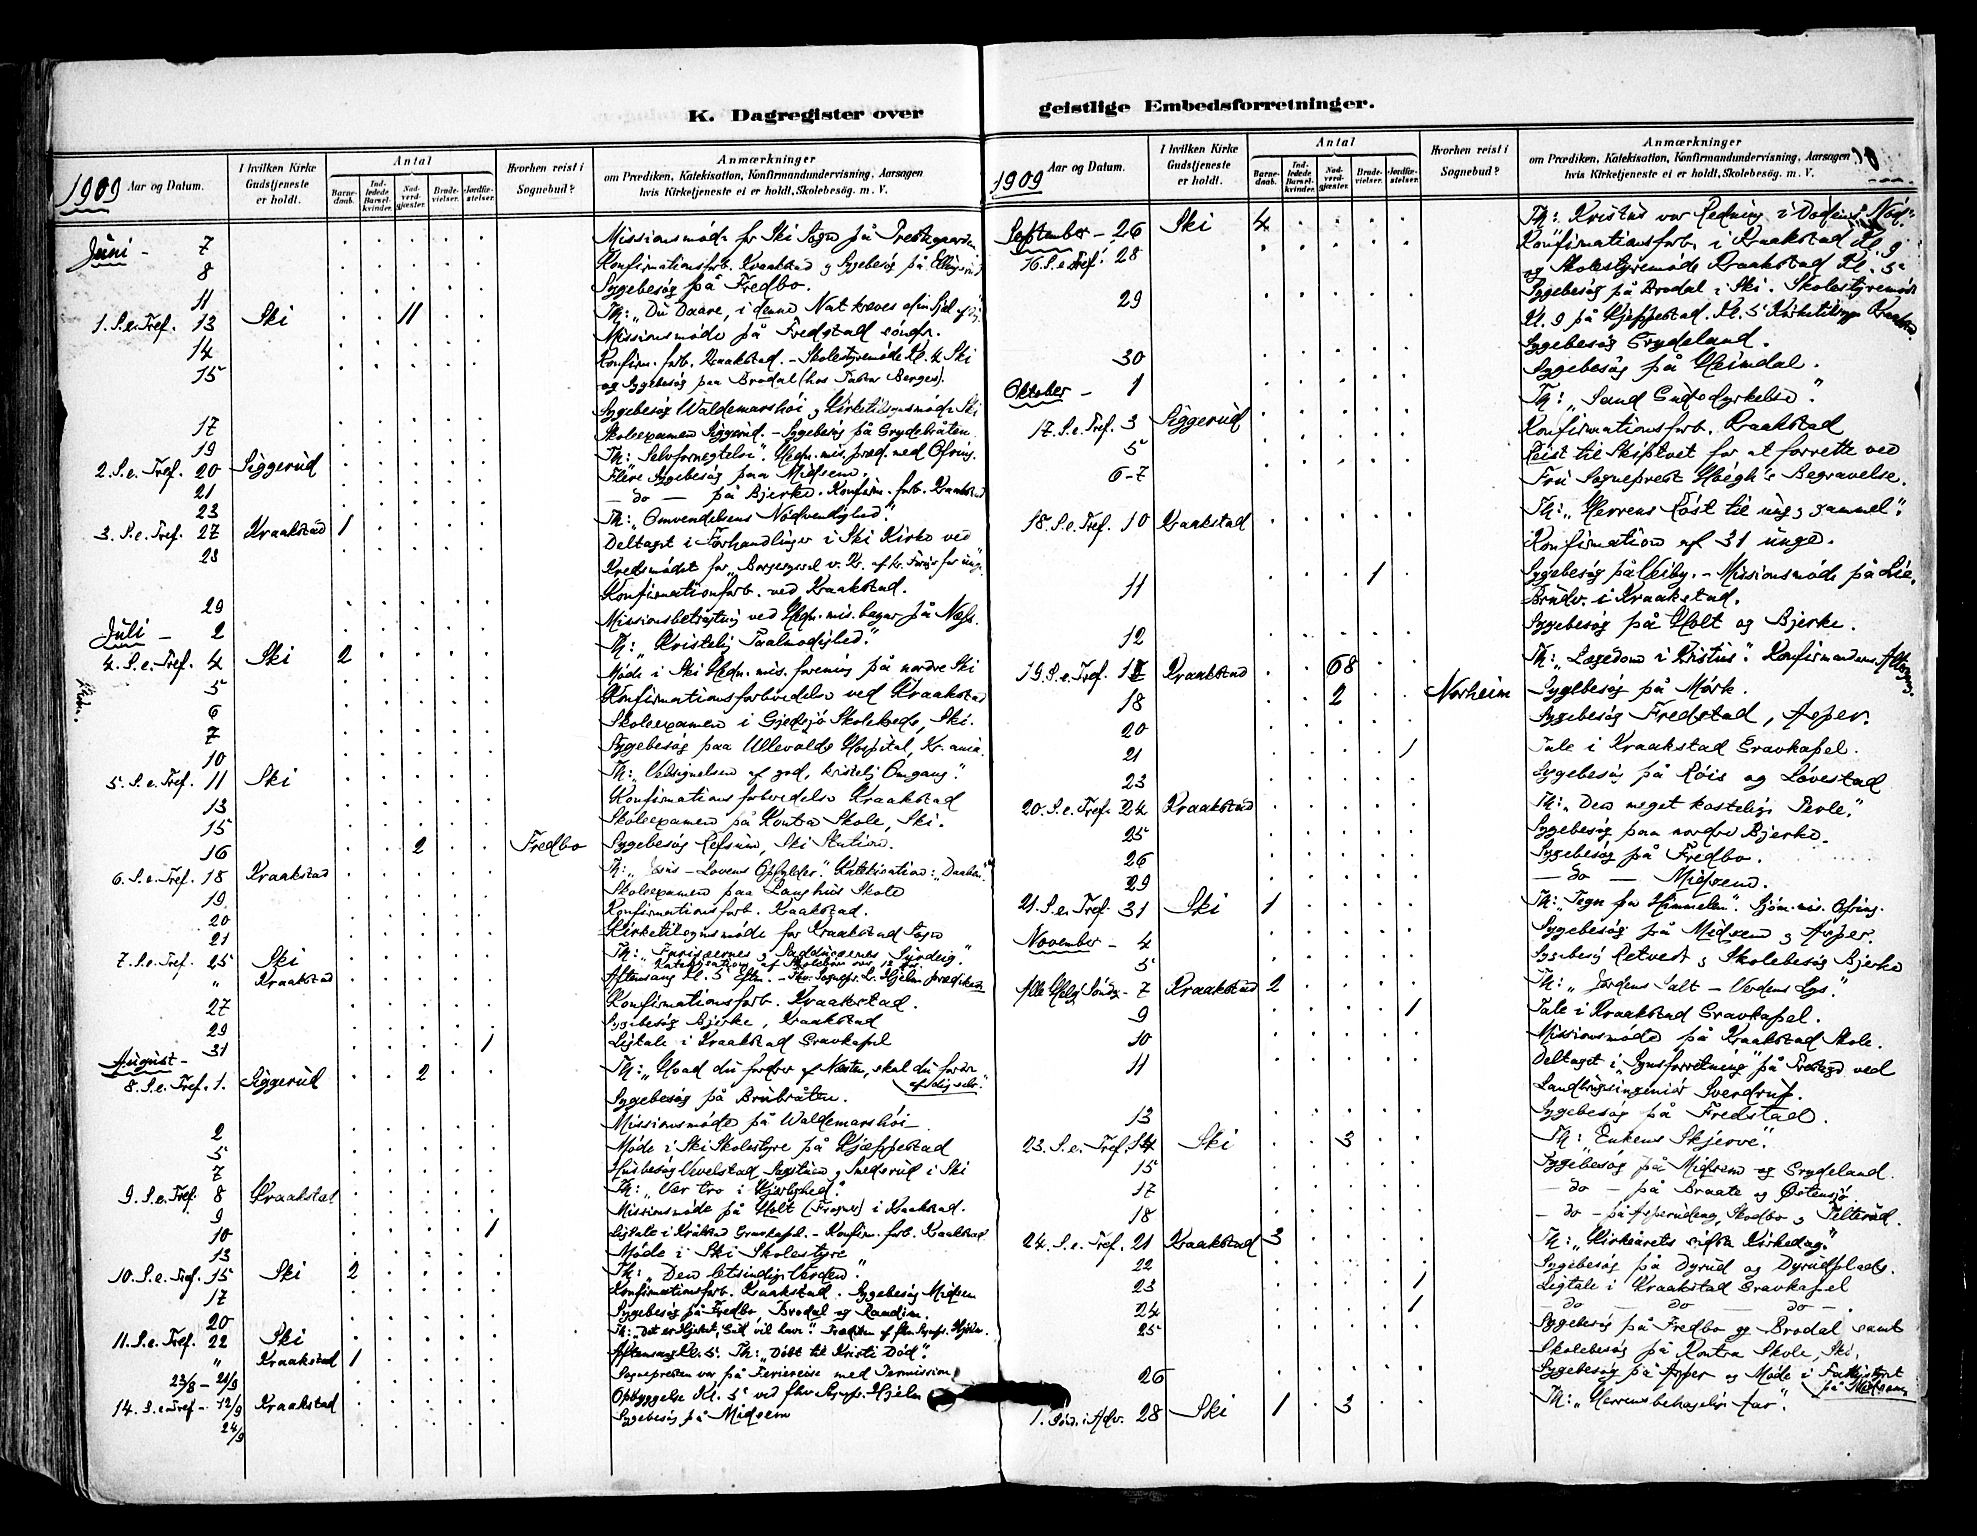 K. Dagregister over
1909 Aar og Datum.
I hvilken Kirke Gudstjeneste er holdt.
Antal
Barnedaab.
Indledede Barselkvinder.
Nadverdgjæster.
Brudevielser.
Jordfæstelser.
Hvorhen reist i Sognebud?
Anmærkninger
om Prædiken, Katekisation, Konfirmandundervisning, Aarsagen
hvis Kirketjeneste ei er holdt, Skolebesøg. m. V.
Juni - 7 Missionsmøde for Ski Sogn på Prestegaarden
8 Konfirmationsforb. Kraakstad og Sygebesøg på
11 Sygebesøg på Fredbo.
1. S. e. Tref. 13 Ski 11 Th: „Du Daare, i denne Nat kræves din Sjæl af dig.
14 Missionsmøde på Fredstad søndr.
15 Konfirm. forb. Kraakstad. - Skolestyremøde Kl. 4 Ski
og Sygebesøg paa Brodal (hos Tabea Berges).
17 Sygebesøg Waldemarshøi og Kirketilsynsmøde Ski
19 Skoleexamen Siggerud. - Sygebesøg på Grydebråten.
2. S. e. Tref. 20 Siggerud Th: „Selvfornegtelse". Hedn. mis. præd. med Ofring.
21 Flere Sygebesøg paa Midsem.
23 - do - på Bjerke. Konfirm. forb. Kraakstad
3. S. e. Tref. 27 Kraakstad 1 Th: „Omvendelsens Nødvendighed".
28 Deltaget i Forhandlinger i Ski Kirke ved
Kredsmødet for „Borgesyssel v. Kr. af kr. Foren. for unge.
29 Konfirmationforb. ved Kraakstad.
Juli - 2 Missionsbetragtning ved Hedn. mis. bazar på Næss.
4. S. e. Tref. 4 Ski 2 Th: „Kristelig Taalmodighed".
5 Møde i Ski Hedn. mis. forening på nordre Ski
6 Konfirmationsforberedelse ved Kraakstad
7 Skoleexamen i Gjedsjø Skolekreds, Ski.
10 Sygebesøg paa Ullevolds Hospital, Kr. ania.
5. S. e. Tref. 11 Ski Th: „Velsignelsen af god, kristelig Omgang".
13 Konfirmationsforberedelse Kraakstad
15 Skoleexamen på Kontra Skole, Ski.
16 2 Fredbo Sygebesøg Refsum, Ski Station.
6. S. e. Tref. 18 Kraakstad Th: „Jesus - Lovens Opfylder". Katekisation: „Daaben".
19 Skoleexamen paa Langhus Skole
20 Konfirmationsforb. Kraakstad.
21 Kirketilsynsmøde for Kraakstad Sogn
7. S. e. Tref. 25 Ski Th: „Farisæernes og Sadducæernes Syrdeig".
Katekisation af Skolebørn
" Kraakstad Aftensang Kl. 5 Eftm. - Fhv. Sognepr. Hjelm prædikede
27 Konfirmationsforb. Kraakstad.
29 Sygebesøg Bjerke, Kraakstad
31 1 Ligtale i Kraakstad Gravkapel
August -
8. S. e. Tref. 1. Siggerud 2 Th: „Hvad du fordrer af Næsten, skal du fordre
af dig selv."
Sygebesøg på Brubråten.
2 Missionsmøde på Waldemarshøi
5 Møde i Ski Skolestyre på Kjeppestad
7 Husbesøg Vevelstad, Sagstuen og Snedsrud i Ski
9. S. e. Tref. 8 Kraakstad Th: „Vær tro i Kjærlighed".
9 Missionsmøde på Holt (Frogner) i Kraakstad.
10 1 Ligtale i Kråkstad Gravkapel. - Konfirm. forb. Kraakstad
13 Møde i Ski Skolestyre
10. S. e. Tref. 15 Ski 2 Th: „Den letsindige Verden".
17 Konfirmationsforb. Kraakstad. Sygebesøg Midsem
20 Sygebesøg på Fredbo, Brodal og Randim.
11. S. e. Tref. 22 Ski Th: „Det er Hjertet, Gud vil have". Prædiken af fhv. Sognepr. Hjelm.
" Kraakstad 1 Aftensang Kl. 5. Th: „Døbt til Kristi Død".
23/8 - 21/9 Sognepresten var på Feriereise med Permission
14. S. e. Tref - 12/9 Kraakstad Opbyggelse Kl. 5 ved fhv Sognepr. Hjelm
24/9 Sygebesøg på Midsem
geistlige Embedsforretninger.
1909 Aar og Datum.
I hvilken Kirke Gudstjeneste er holdt.
Antal
Barnedaab.
Indledede Barselkvinder.
Nadverdgjæster.
Brudevielser.
Jordfæstelser.
Hvorhen reist i Sognebud?
Anmærkninger
om Prædiken, Katekisation, Konfirmandundervisning, Aarsagen
hvis Kirketjeneste ei er holdt, Skolebesøg. m. V.
September - 26 Ski 4 Th: Kristus vor Redning i Dødens Nød.
16. S. e. Tref. 28 Konfirmationsforb. i Kraakstad Kl. 9
og Skolestyremøde Kraakstad Kl. 5
29 Sygebesøg på Brodal i Ski. Skolestyremøde
Kl. 9 på Kjeppestad. Kl. 5 Kirketilsyn Kraakstad.
30 Sygebesøg Grydeland.
Oktober - 1 Sygebesøg på Heimdal.
17. S. e. Tref. 3 Siggerud Th: „Sand Gudsdyrkelse".
5 Konfirmationsforb. Kraakstad
6-7 Reist til Skiptvet for at forrette ved
Fru Sogneprest Høegh's Begravelse.
18. S. e. Tref. 10 Kraakstad Th: „Herrens Røst til ung og gammel".
Konfirmation af 31 unge.
11 1 Sygebesøg på - Missionsmøde på Lie.
Brudev. i Kraakstad.
12 Sygebesøg på Holt og Bjerke.
19. S. e. Tref. 17 Kraakstad 68 Th: „Lægedom i Kristus". Konfirmandernes Altergang.
18 2 Norheim Sygebesøg på Mørk.
20 Sygebesøg Fredstad, Asper.
21 1 Tale i Kraakstad Gravkapel.
23 Sygebesøg på Røis og Løvestad
20. S. e. Tref. 24 Kraakstad Th: „Den meget kostelige Perle".
25 Sygebesøg paa nordre Bjerke.
26 Sygebesøg på Fredbo.
29 - do - Midsem.
21. S. e. Tref. 31 Ski 1 Th: „Tegn fra Himmelen". Sjøm. mis. Ofring.
November - 4 Sygebesøg på Midsem og Asper.
5 Sygebesøg Retvest og Skolebesøg Bjerke
Alle Helg. Sønd. - 7 Kraakstad 2 Th: „Jordens Salt - Verdens Lys."
9 1 Tale i Kraakstad Gravkapel.
10 Missionsmøde på Kraakstad Skole.
11 Deltaget i „Synsforretning" på Prestegd ved
Landbrugsingeniør Sverdrup.
13 Sygebesøg på Fredstad.
23. S. e. Tref. 14 Ski 3 Th: „Enkens Skjerve".
15 Sygebesøg på Midsem og Grydeland.
17 - do - på Braate og Østensjø.
18 - do - på Asperudeng, Skodbo og Telterud.
24. S. e. Tref. 21 Kraakstad 3 Th: „Kirkeårets sidste Kirkedag".
22 Sygebesøg på Dyrud og Dyrudplads.
23 1 Ligtale i Kraakstad Gravkapel
24 1 - do - do - do -.
25 Sygebesøg på Fredbo og Brodal samt
Skolebesøg på Kontra Skole, Ski.
26 Sygebesøg på Asper og Møde i Fattigstyret
på Midsem.
1. Søn. i Adv. 28 Ski 1 3 Th: „Herrens behagelige Aar".